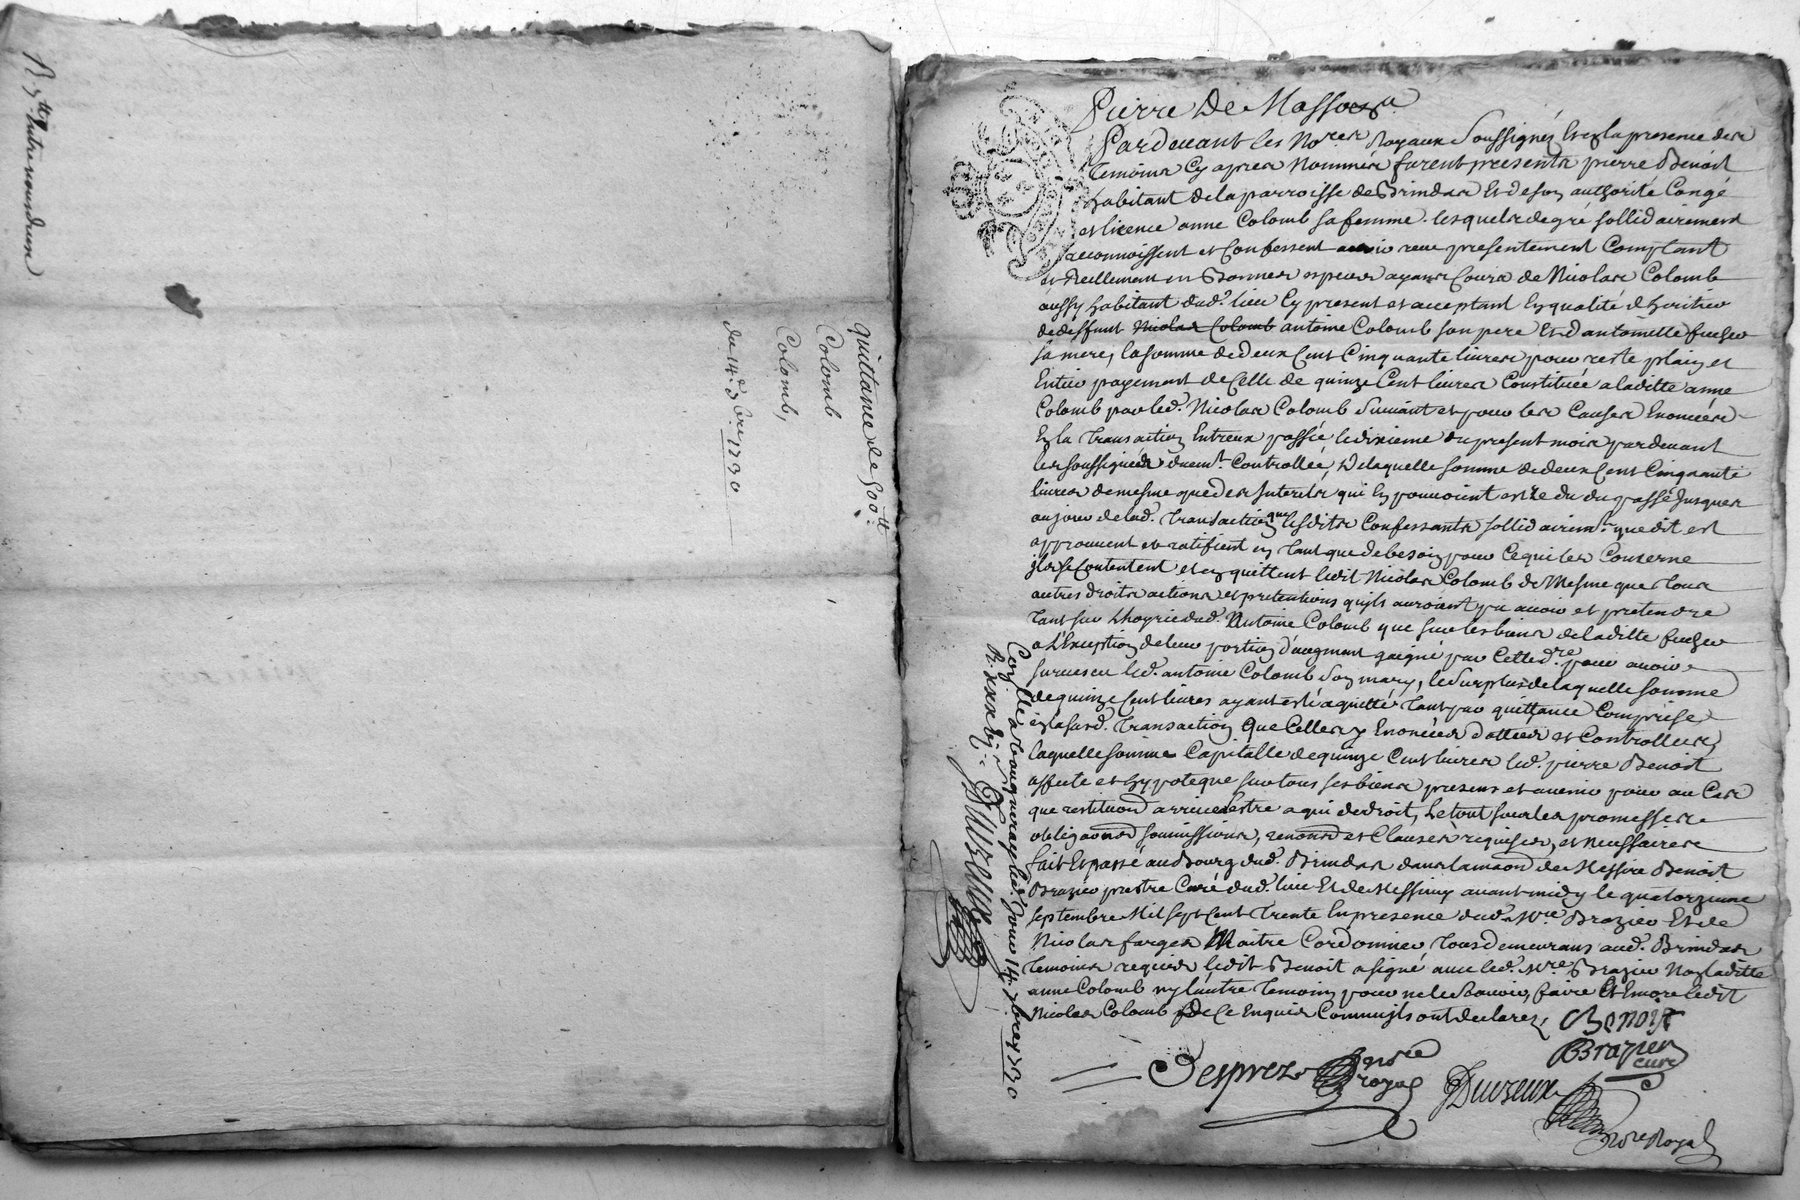 R gtté Entre nous deux
quittance de 500tt
Colomb
Colomb,
du 14e 7bre 1730
Pierre De Masso
Pardevant les Nores Royaux Soussignés Et en la presence des
temoins Cy apres Nommés furent presents pierre Benoist
habitant de la parroisse de Brindas Et de son authorité Congé
et licence anne Colomb sa femme. lesquels de gré sollidairement
reconnoissent et Confessent avoir receu presentement Comptant
et Reellement en Bonnes especes ayans Cours de Nicolas Colomb
aussy habitant dud. lieu Cy present et acceptant En qualité d'heritier
de deffunt Nicolas Colomb antoine Colomb son pere Et d'antoinette
sa mere, la somme de deux Cent Cinquante livres pour reste plain et
Entier payement de Celle de quinze Cent livres Constituée a laditte anne
Colomb par led. Nicolas Colomb Suivant et pour les Causes Enoncées
En la transaction Entreux passée le dixieme du present mois pardevant
les soussignés duemt. Controllée, De laquelle somme de deux Cent Cinquante
livres de mesme que des Interests qui En pouvoient estre du du passé Jusques
au jour de lad. transaction que lesdits Confessants sollidairemt. que dit est
approuvent et ratifient en tant que de besoin pour Ce qui les Conserne
ils se Contentent et en quittent ledit Nicolas Colomb de Mesme que tous
autres droits actions et pretentions quils auroient pu avoir et pretendre
tant sur Lhoyrie dud. Antoine Colomb que sur les biens de laditte
a L'Exception de leur portion d'augment gaigné par Cette dre. pour avoir
survescu led. antoine Colomb Son mary, le Surplus de laquelle somme
de quinze Cent livres ayant esté aquitté tant par quittance Comprise
en lasusd. transaction Que Celles y Enoncées dattées et Controllées,
laquelle somme Capitalle de quinze Cent livres led. pierre Benoist
affecte et hypoteque sur tous ses biens presens et avenir pour au Cas
que restituon arrive lestre a qui de droit, Le tout sous les promesses
obligaons soumissions, renons et Clauses requises, et neccssaires
fait Et passé au Bourg dud. Brindas dans la maon de Messire Benoist
Brazier prestre Curé dud. lieu Et de Messimy avant midy le quatorzieme
septembre Mil sept Cent trente En presence dud. Mre Brazier Et de
Nicolas farges Maitre Cordonnier tous demeurans aud. Brindas
temoins requis ledit Benoit a signé avec led. Mre Brazier Non laditte
anne Colomb ny lautre temoin pour ne le scavoir faire Et Encore ledit
Nicolas Colomb De Ce Enquis Comme ils ont declarez,
Benoist
Brazier
curé
Desprez nore royal
Duvzeux
nore Royal
Conllé a vaugneray led. Jour 14e 7bre 1730
R. xxx s.
Duvzeux